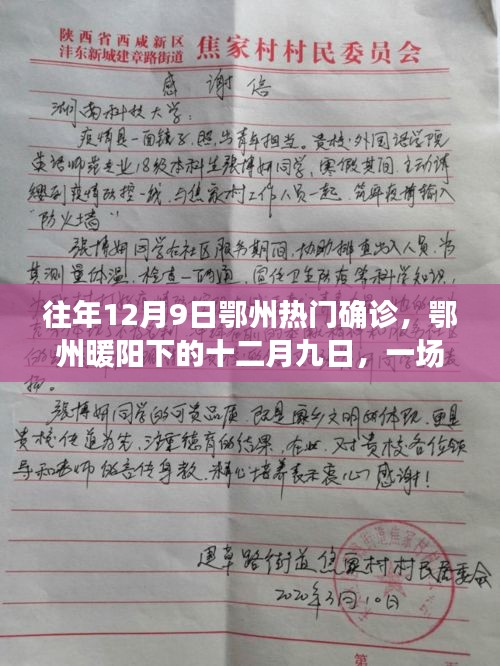 陕西省西咸新区
沣东新城建章路街道 焦家村村民委员会
感谢信
湖南科技大学：
疫情是一面镜子，照出青年担当。贵校外国语学院
英语师范专业18级本科生张博妍同学，寒假其间，主动请
缨到疫情防控一线，与焦家村工作人员一起，筑牢疫情输入
"防火墙"
张博妍同学在社区服务期间，协助排查出入人员，为
其测量体温，检查一码通，宣传卫生防疫等科学知识，
往年12月9日鄂州热门确诊，鄂
州暖阳下的十二月九日，一场
扬。
张博妍同学的可贵品质，既是家乡文明的体现，更是
贵校传道为先，注重德育的结果，在此，对贵校各位领
导和老师的言传身教，精心培养表示衷心感谢！
建章路街道焦家村村民委员会
2020年3月10日
第 页 共 页